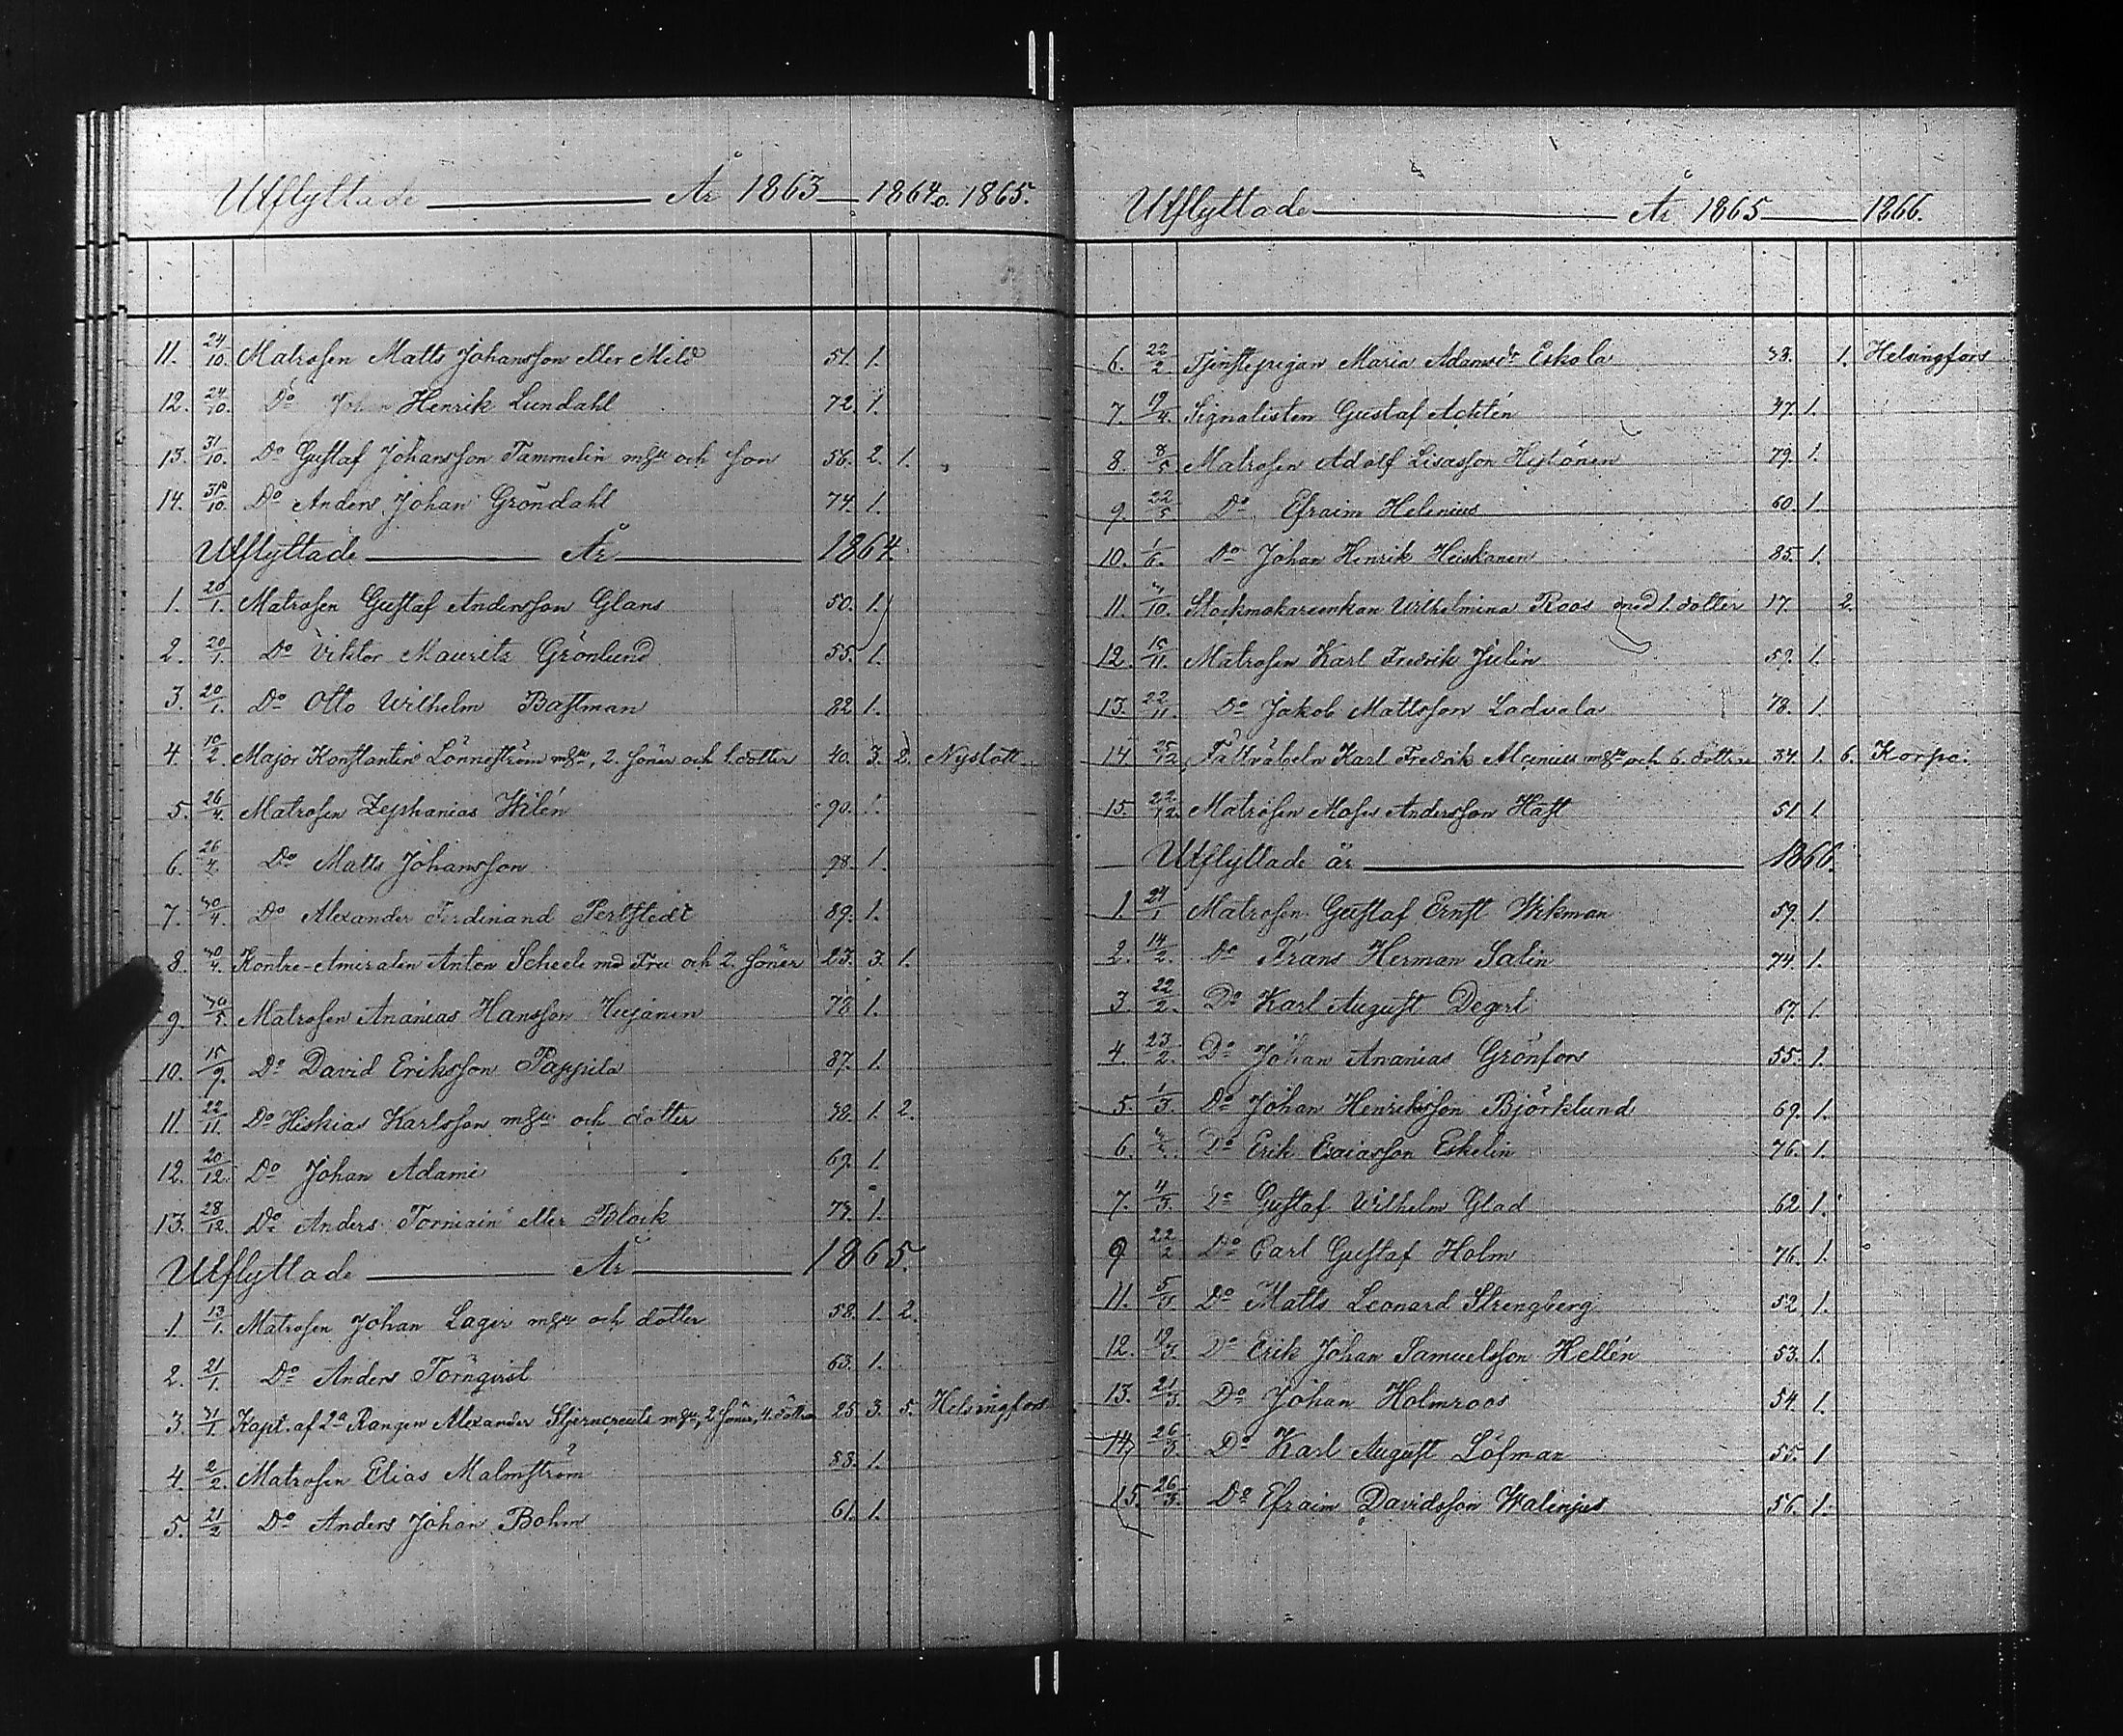 Utflyttade År 1863 1864 o. 1865.
11. 24/10. Matrosen Matts Johansson eller Mild 51. 1.
12. 24/10. Do Johan Henrik Lundahl 72. 1.
13. 31/10. Do Gustaf Johansson Tammelin m hu och son 56. 2. 1.
14. 31/10. Do Anders Johan Gröndahl 74. 1.
Utflyttade År 1864.
1. 20/1. Matrosen Gustaf Andersson Glans 50. 1.
2. 20/1. Do Viktor Mauritz Grönlund 55. 1.
3. 20/1. Do Otto Wilhelm Bastman 82 1.
4. 10/2 Major Konstantin Lönneström m hu, 2. söner och 1. dotter 40. 3. 2. Nyslott
5. 26/4. Matrosen Zephanias Wilén 90. 1.
6. 26/4 Do Matts Johansson 98. 1.
7. 30/4. Do Alexander Ferdinand Perlstedt 89. 1.
8. 30/4. Kontre-Amiralen Anton Scheele md Fru och 2. söner 23. 3. 1.
9. 30/5. Matrosen Ananias Hansson Hujanen 78 1.
10. 15/9. Do David Eriksson Pappila 87. 1.
11. 22/11. Do Hiskias Karlsson m hu och dotter 1. 2.
12. 20/12. Do Johan Adami 69. 1.
13. 28/12. Do Anders Torniain eller Block 79. 1.
Utflyttade År 1865.
1. 13/1. Matrosen Johan Lager m hu och dotter 58. 1. 2.
2. 21/1. Do Anders Törnqvist 63. 1.
3. 31/1. Kapt. af 2a Rangen Alexander Stjerncreutz m hu, 2 söner, 4. döttrar 25 3. 5. Helsingfors
4. 2/2. Matrosen Elias Malmström 58. 1.
5. 21/2 Do Anders Johan Bohm 61. 1.
Utflyttade År 1865 1866.
6. 22/2. Tjenstepigan Maria Adamsdr Eskola 38. 1. Helsingfors
7. 19/4. Signalisten Gustaf Achtén 37. 1.
8. 8/5 Matrosen Adolf Lisasson Hytönen 79. 1.
9. 22/5 Do Efraim Helenius 60. 1.
10. 1/6. Do Johan Henrik Heiskanen 85. 1.
11. /10. Stockmakareenkan Wilhelmina Roos med 1. dotter 17. 2.
12. 15/11. Matrosen Karl Fredrik Julin 59. 1.
13. 22/11. Do Jakob Mattsson Ladvala 78. 1.
14 25/12 Fältväbeln Karl Fredrik Alcenius m hu och 6. döttrar 34. 1. 6. Korpo:
15. 22/12. Matrosen Moses Andersson Haft 51 1
Utflyttade år 1866.
1. 24/1 Matrosen Gustaf Ernst Wikman 59. 1.
2. 14/2. Do Frans Herman Salin 74. 1.
3. 22/2. Do Karl August Degert 67. 1
4. 23/2. Do Johan Ananias Grönfors 55. 1.
5. 1/3. Do Johan Henriksson Björklund 69. 1.
6. Do Erik Esaiasson Eskelin 76. 1.
7. 4/3. Do Gustaf Wilhelm Glad 62 1.
9 22/2 Do Carl Gustaf Holm 76. 1.
11. 5/3 Do Matts Leonard Strengberg 52 1.
12. 19/3. Do Erik Johan Samuelsson Hellén 53. 1.
13. 21/3 Do Johan Holmroos 54. 1.
14. 26/3. Do Karl August Löfman 55. 1
15. 26/3. Do Efraim Davidsson Walinjus 56. 1.